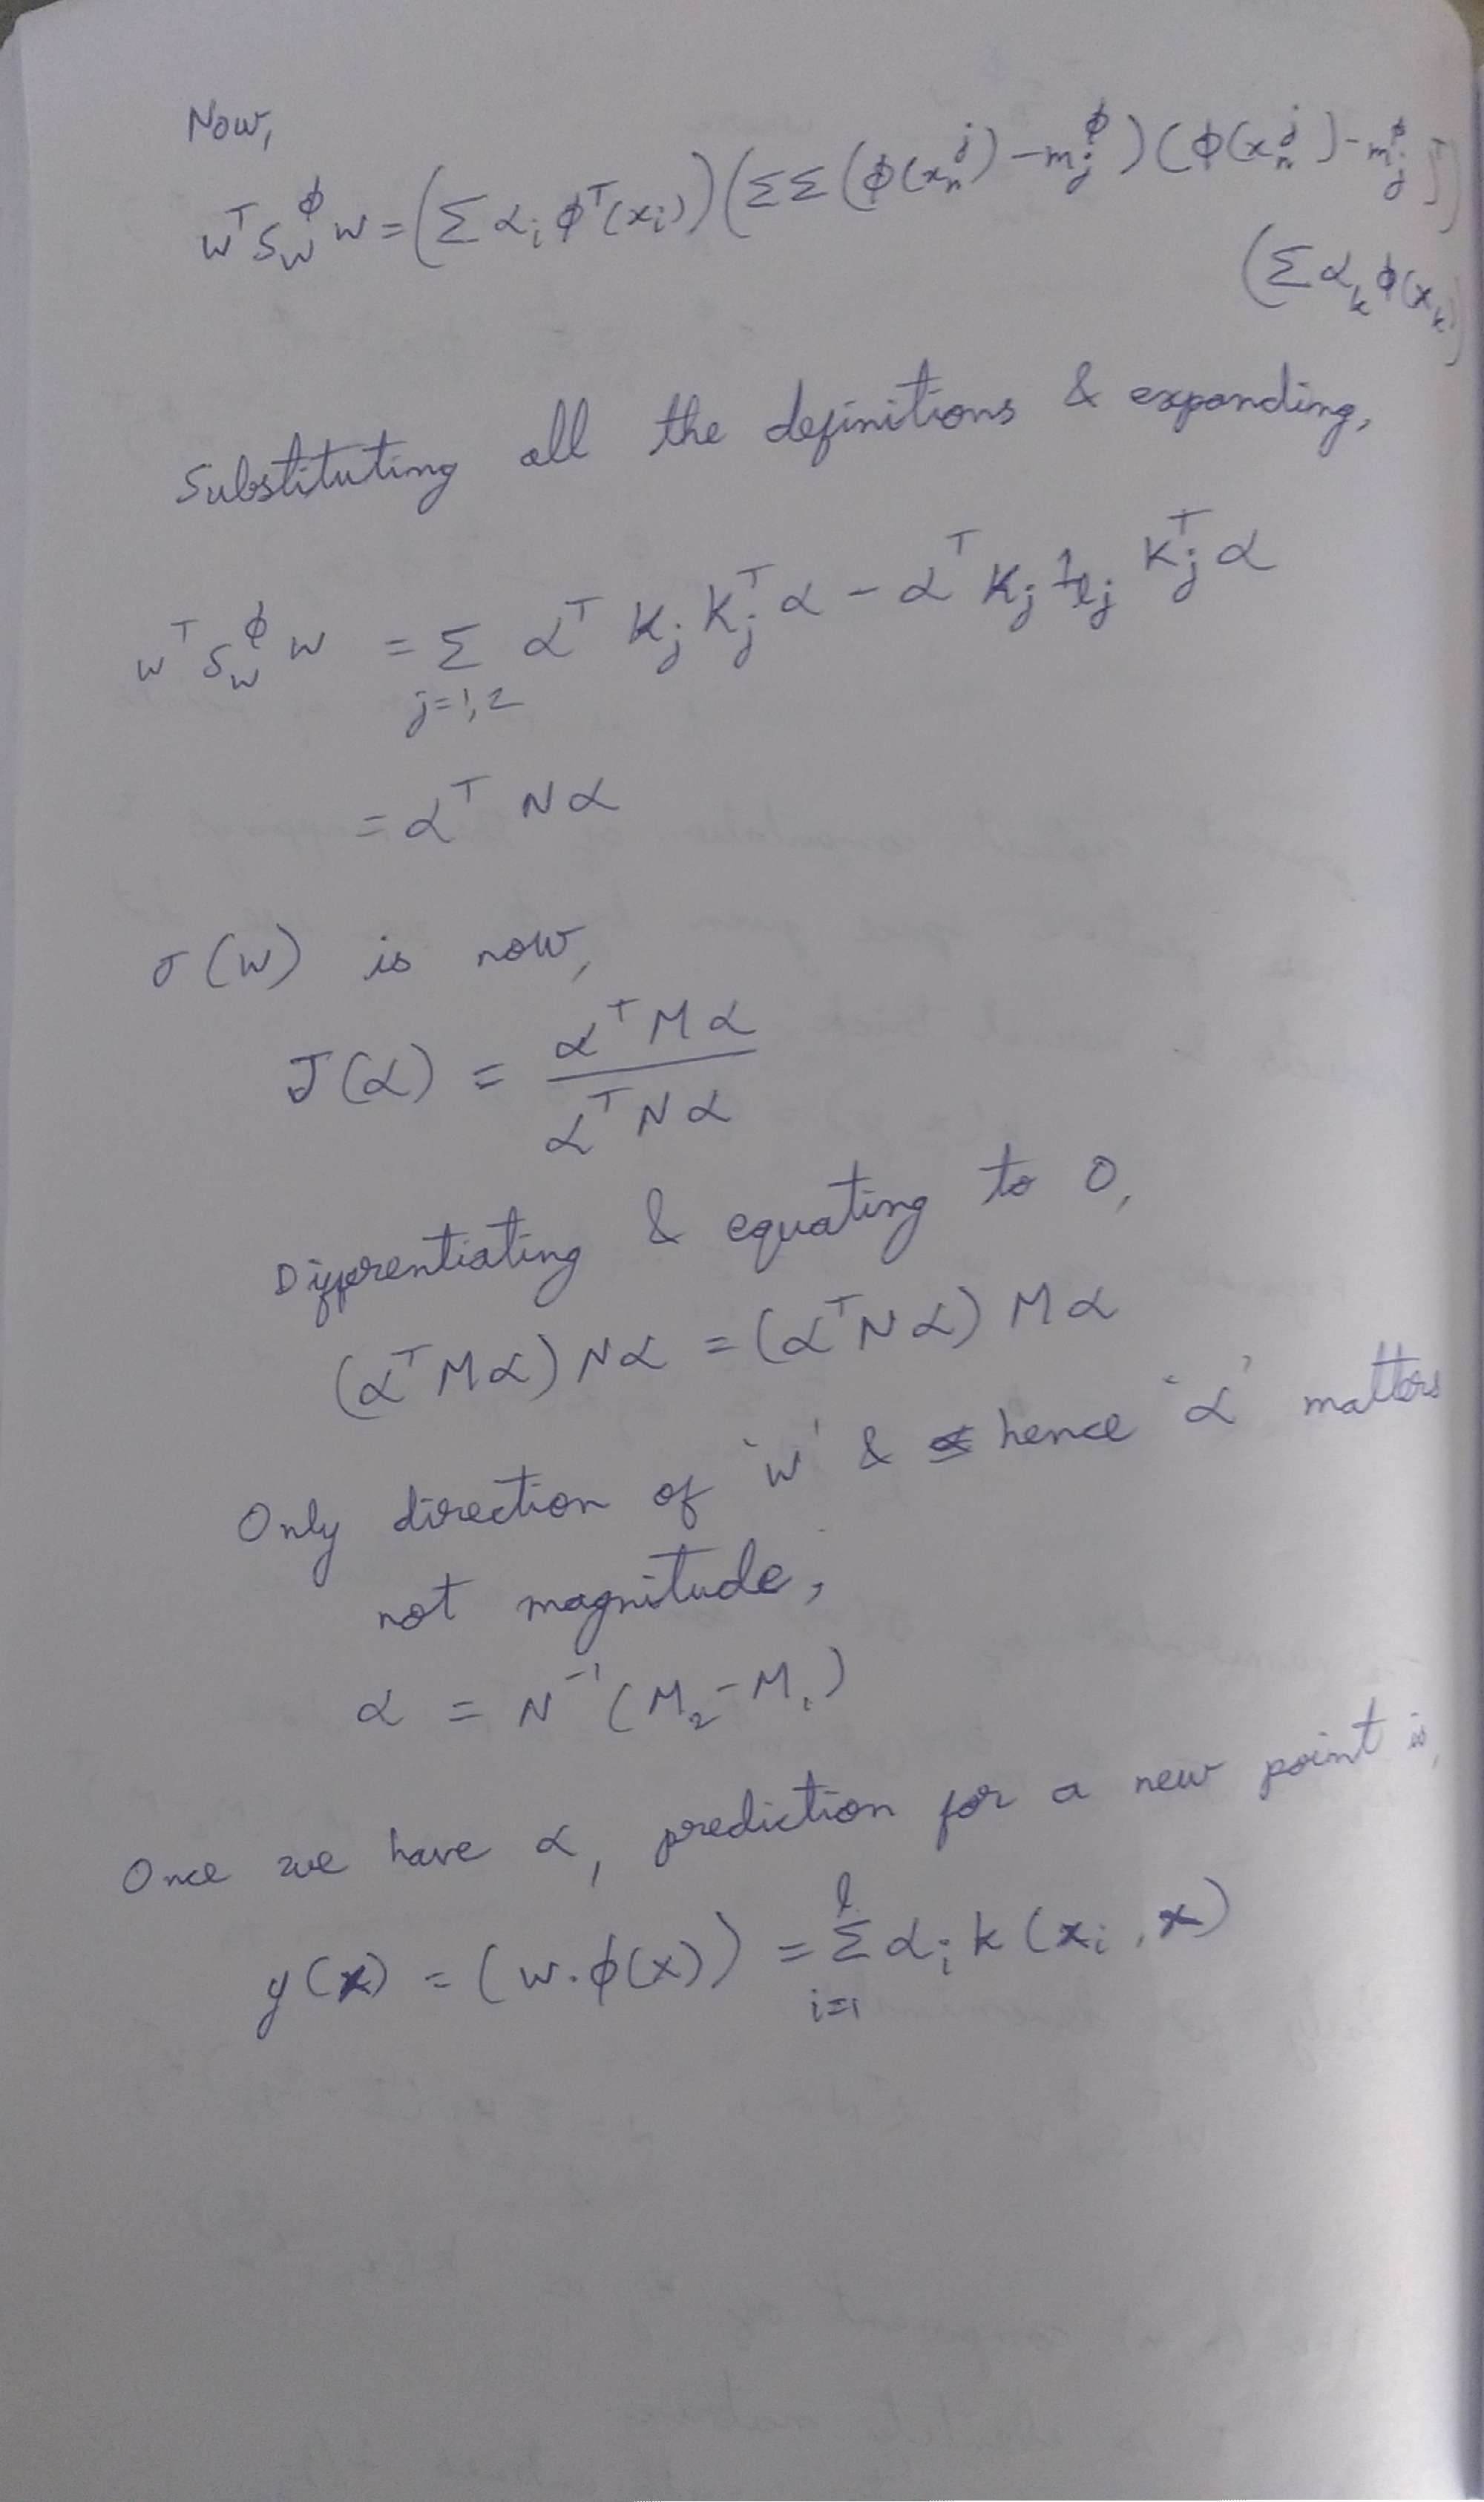 Now,
wᵀ S_w^ϕ w = (Σ α_i ϕᵀ(x_i)) (ΣΣ (ϕ(x_n^j) - m_j^ϕ) (ϕ(x_n^j) - m_j^ϕ)ᵀ)
(Σ α_k ϕ(x_k))
Substituting all the definitions & expanding,
wᵀ S_w^ϕ w = Σ_{j=1,2} αᵀ K_j K_jᵀ α - αᵀ K_j 1_{l_j} K_jᵀ α
= αᵀ N α
J(w) is now,
J(α) = αᵀ M α / αᵀ N α
Differentiating & equating to 0,
(αᵀ M α) N α = (αᵀ N α) M α
Only direction of 'w' & hence 'α' matters
not magnitude,
α = N⁻¹ (M₂ - M₁)
Once we have α, prediction for a new point is,
y(x) = (w.ϕ(x)) = Σ_{i=1}^{l} α_i k(x_i, x)